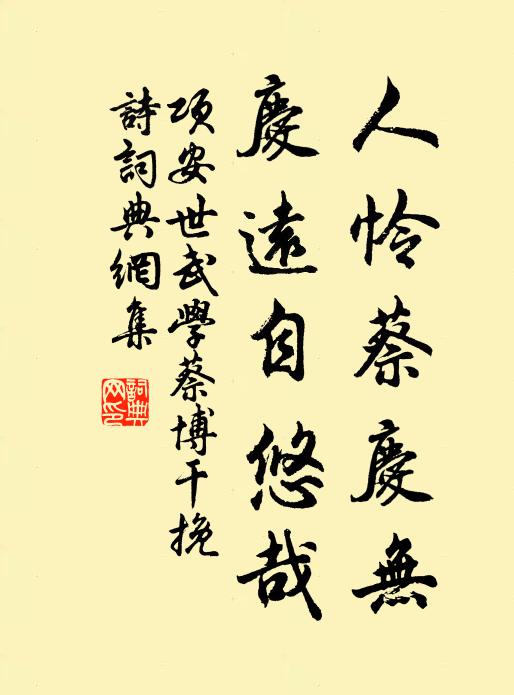 人怜蔡慶無
慶遠自悠哉
項安世武學蔡博干挽
詩詞典網集
詞典網印